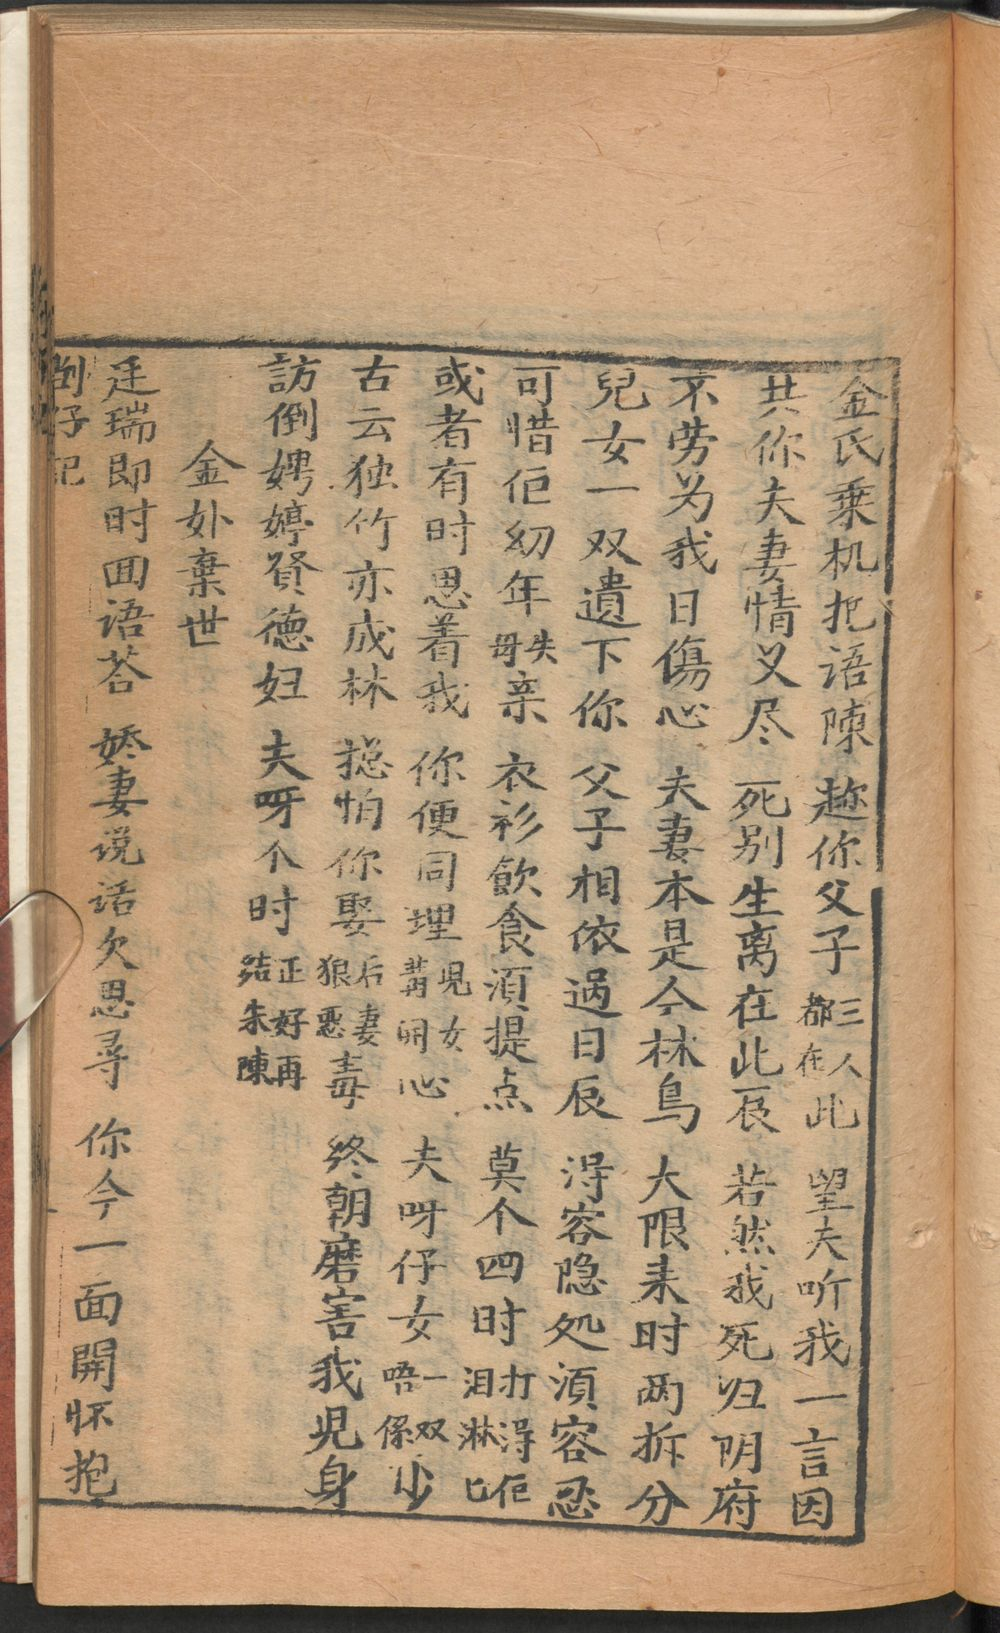 金氏乗机把语陳 趂你父子三人都在此 望夫听我一言因
共你夫妻情义尽 死别生离在此辰 若然我死归阴府
不劳为我日傷心 夫妻本是仝林鳥 大限耒时两拆分
兒女一双遺下你 父子相依过日辰 淂容隐处湏容忍
可惜佢幼年失母亲 衣衫飲食湏提点 莫个四时打淂佢泪淋匕
或者有时思着我 你便同埋兒女冓開心 夫呀仔女一双唔係少
古云独竹亦成林 揔怕你娶后妻狼悪毒 终朝磨害我児身
訪倒娉婷賢德妇 夫呀个时正好再結朱陳
金外棄世
廷瑞即时囬语荅 娇妻说话欠思尋 你今一面開怀抱
仔記